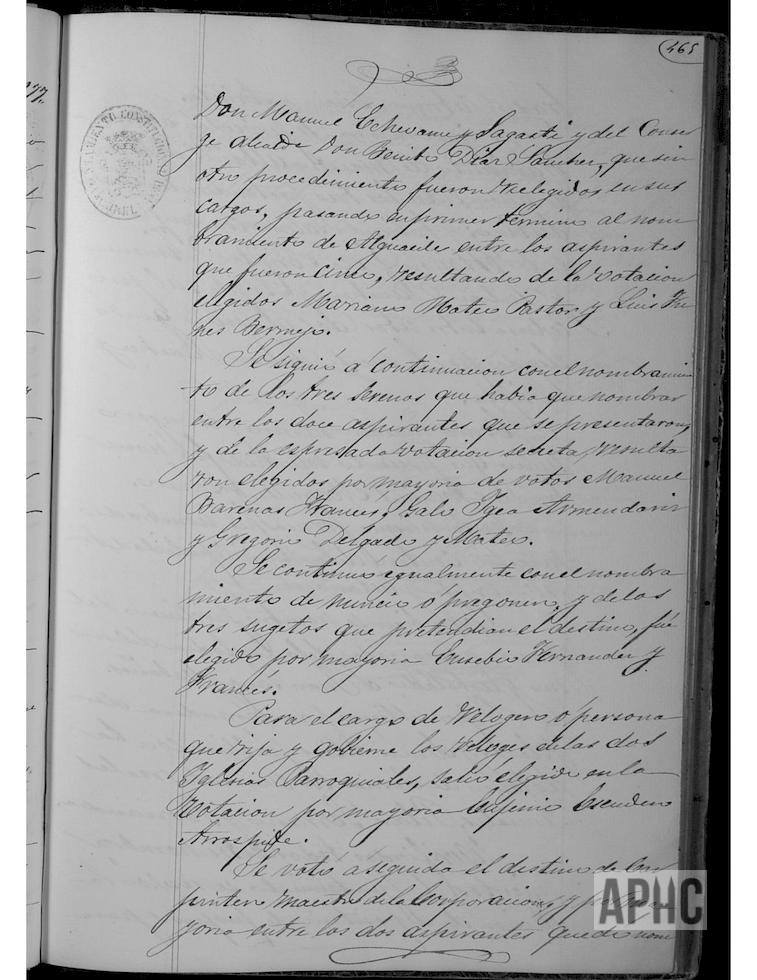 465
Don Manuel Echevarne y Sagasti y del Conser
ge alcaide Don Benito Diaz Sanchez, que sin
otro procedimiento fueron reelegidos en sus
cargos, pasando en primer termino al nom
bramiento de Alguacile entre los aspirantes
que fueron cinco, resultando de la votacion
elegidos Mariano Mateo Pastor y Luis Fu
nes Bermejo.
Se siguió á continuacion con el nombramien
to de los tres serenos que habia que nombrar
entre los doce aspirantes que se presentaron,
y de la espresada votacion secreta, resulta
ron elegidos por mayoria de votos Manuel
Barenas Francés, Galo Igea Armendariz
y Gregorio Delgado y Mateo.
Se continuó egualmente con el nombra
miento de nuncio ó pregonero, y de los
tres sugetos que pretendian el destino, fué
elegido por mayoria Eusebio Fernandez y
Francés.
Para el cargo de Relogero ó persona
que rija y gobierne los reloges de las dos
Iglesias Parroquiales, salió elegido en la
votacion por mayoria Eujenio Escudero
Arrospide.
Se votó aseguida el destino de Car
pintero maestro de la Corporacion, y por ma
yoria entre los dos aspirantes quedó nom
AYUNTAMIENTO CONSTITUCIONAL
APHC